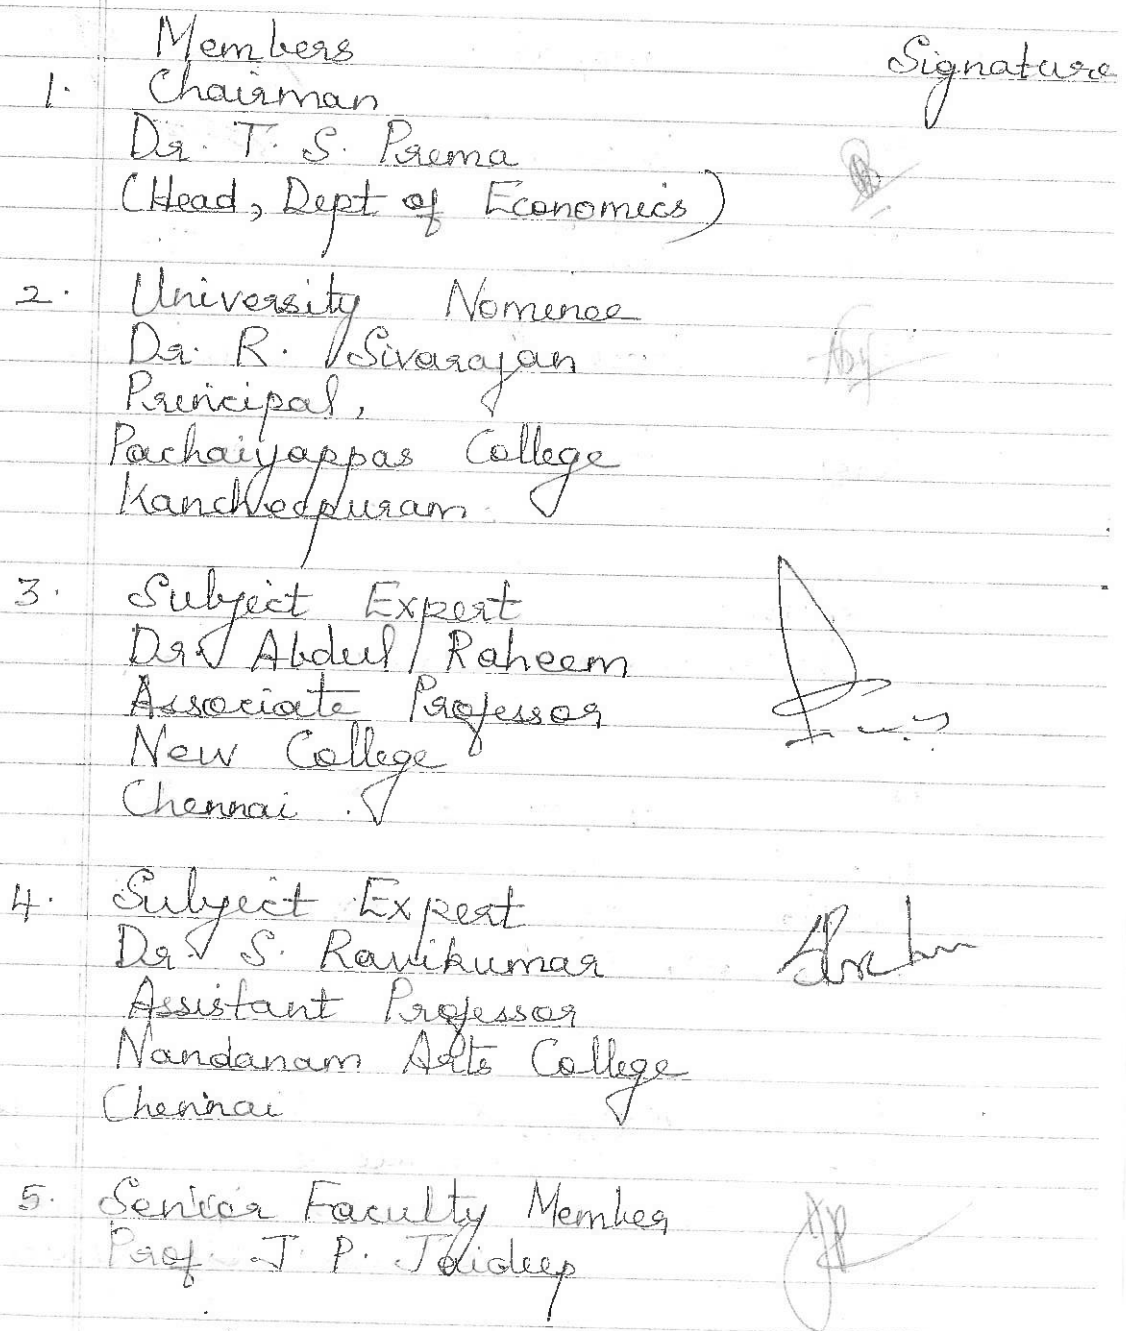 Members Signature
1. Chairman
Dr. T. S. Prema
(Head, Dept of Economics)
2. University Nominee
Dr. R. Sivarajan
Principal,
Pachaiyappas College
Kancheepuram.
3. Subject Expert
Dr. Abdul Raheem
Associate Professor
New College
Chennai.
4. Subject Expert
Dr. S. Ravikumar
Assistant Professor
Nandanam Arts College
Chennai
5. Senior Faculty Member
Prof. J. P. Jaideep